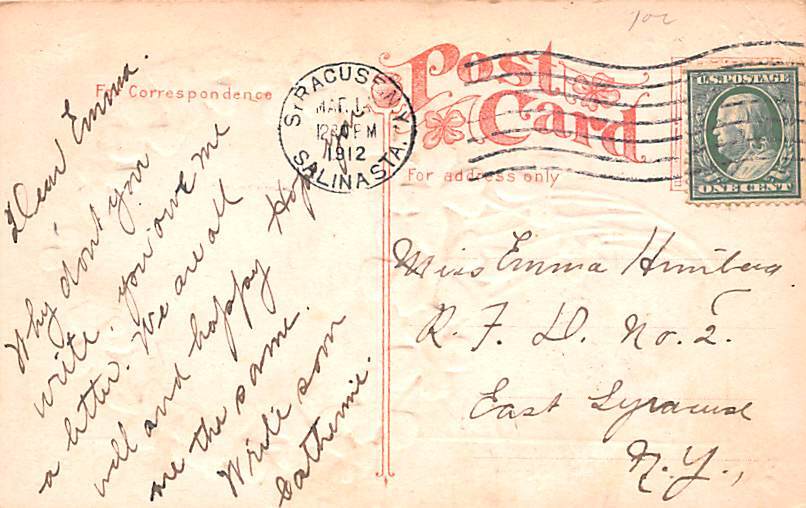 Post
Card
For Correspondence
For address only
SYRACUSE, N.Y.
12 30 PM
1912
SALINA STA.
U.S. POSTAGE
ONE CENT
Dear Emma.
Why don't you
write, you owe me
a letter. We are all
well and happy Hope you
are the same.
Write soon
Catherine.
Miss Emma
R. F. D. No. 2.
East Syracuse
N. Y.,